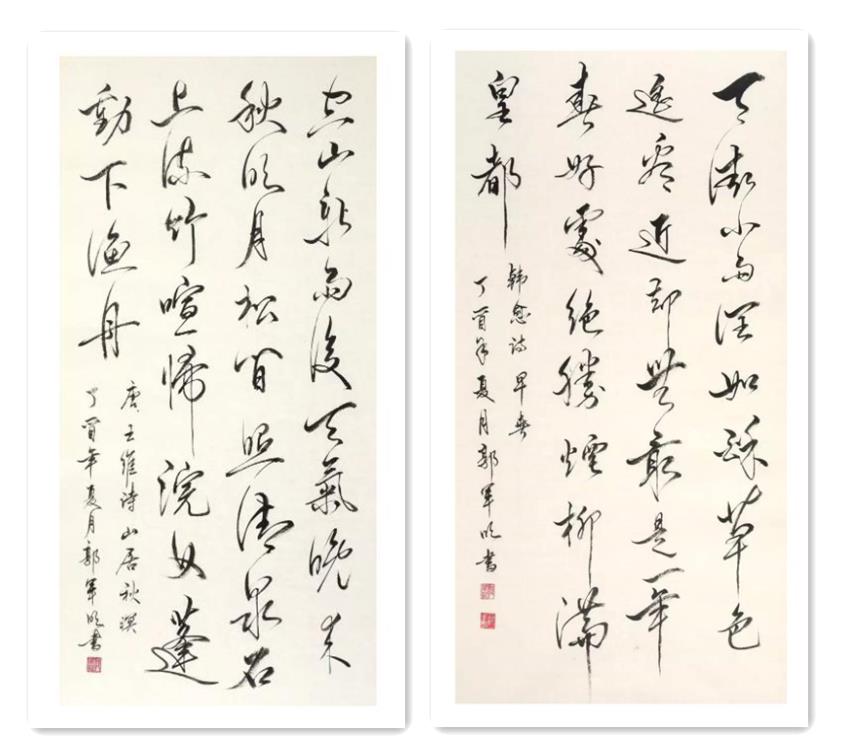 空山新雨後天氣晚来
秋明月松間照清泉石
上流竹喧歸浣女蓮
動下漁舟
唐王維诗山居秋暝
丁酉年夏月郭軍明書
天街小雨潤如酥草色
遙看近却無最是一年
春好處絕勝煙柳滿
皇都
韩愈诗早春
丁酉年夏月郭軍明書